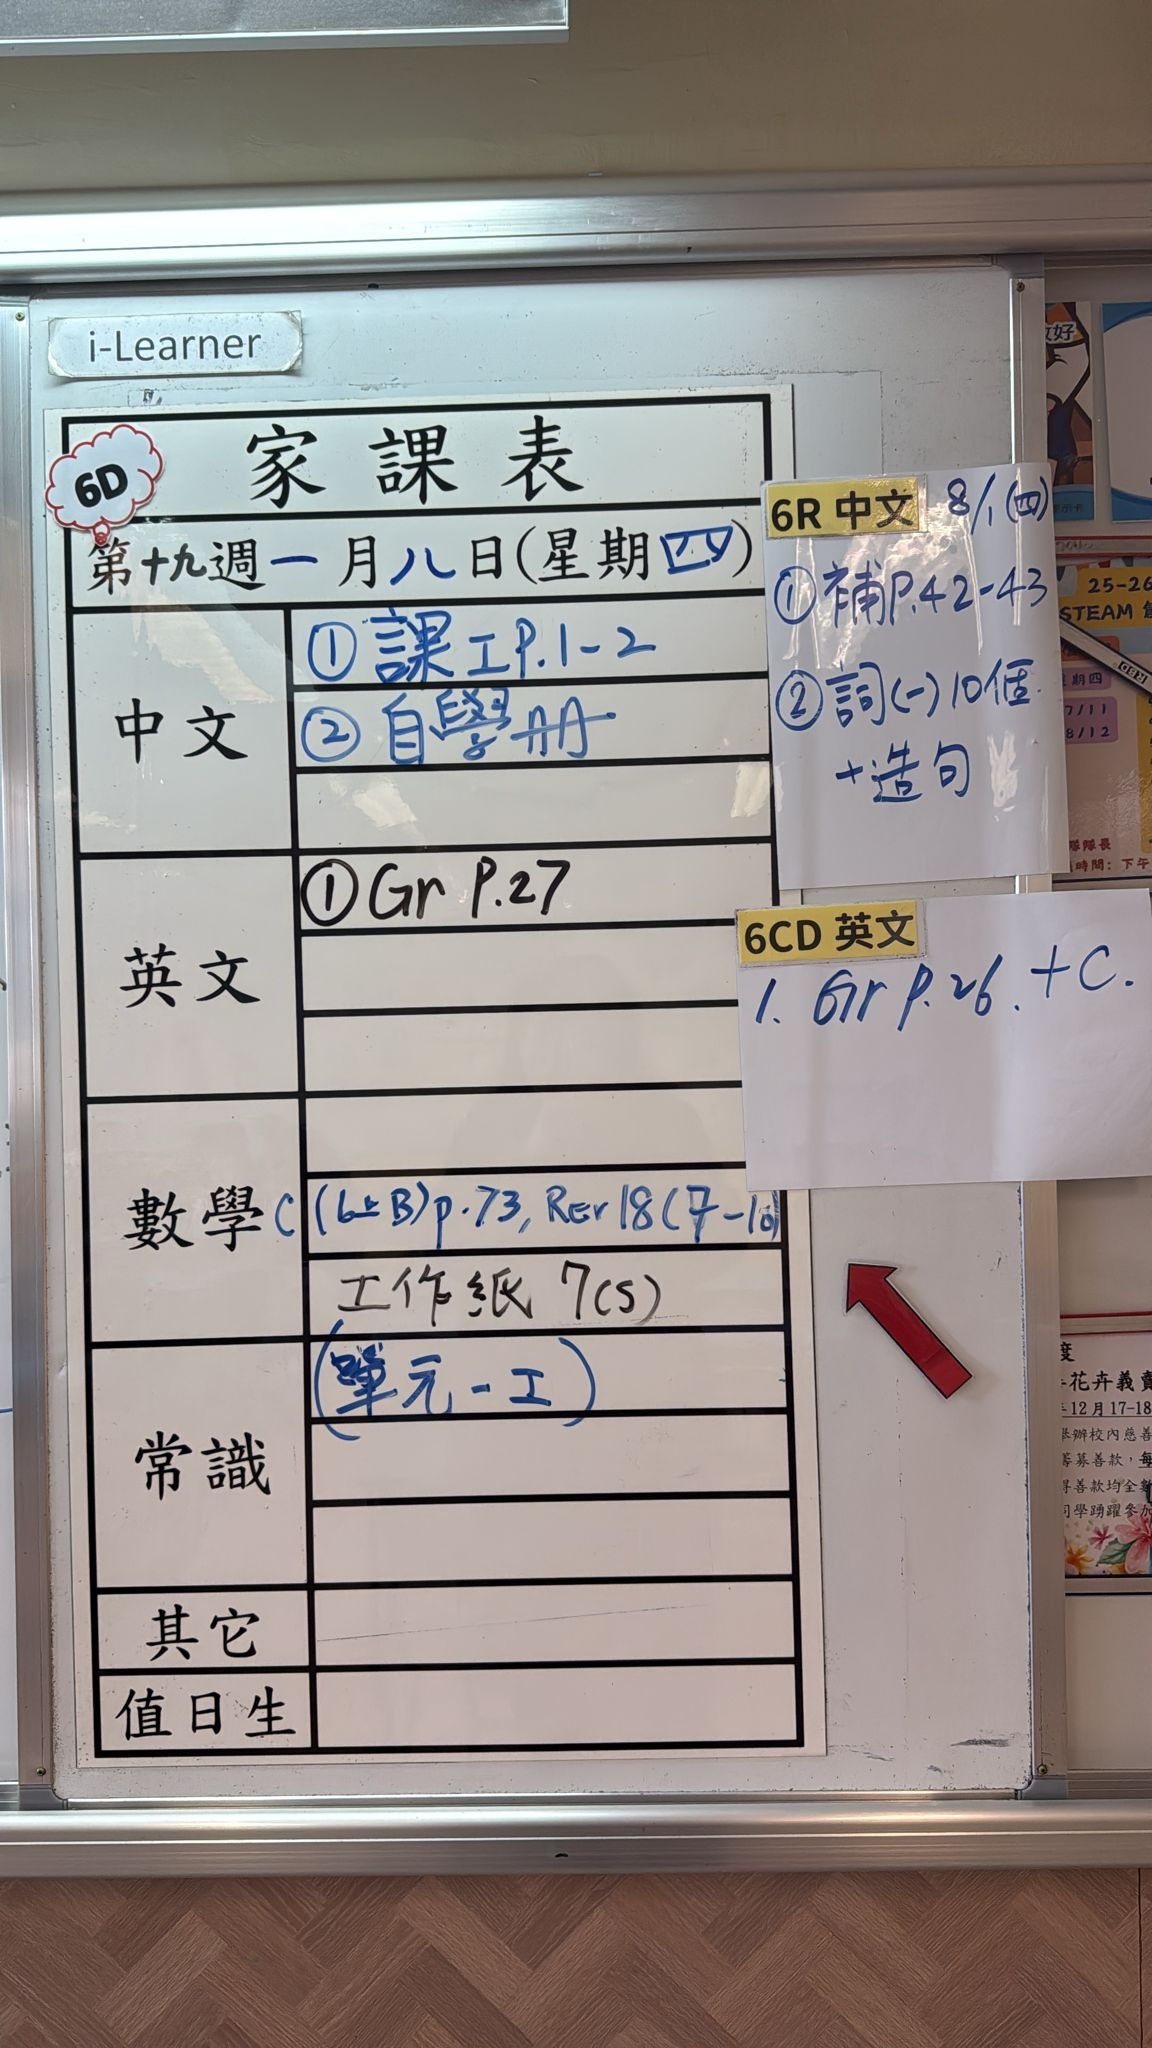 i-Learner
6D
家課表
第十九週一月八日(星期四)
中文
①課工P.1-2
②自學册
英文
①Gr P.27
數學
C (6上B)p.73, Rev 18(7-10)
工作紙 7(S)
常識
(單元一工)
其它
值日生
6R 中文 8/1(四)
①補P.42-43
②詞(一)10個
+造句
6CD 英文
1. Gr P.26. +C.
25-26
STEAM
期四
7/11
8/12
隊隊長
時間：下午
度
花卉義賣
12月17-18
舉辦校內慈善
籌募善款，每
善款均全數
同學踴躍參加